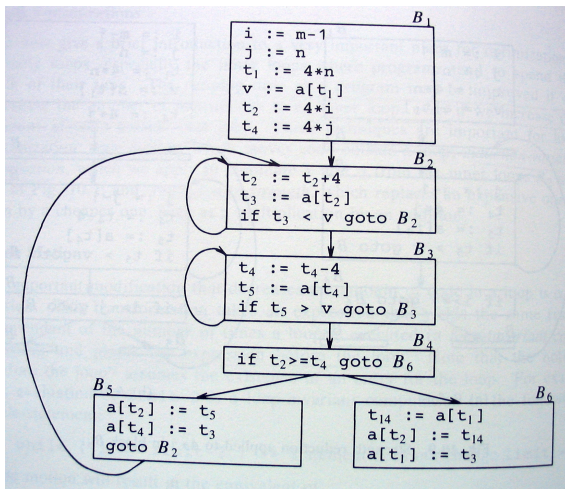 B₁
i := m-1
j := n
t₁ := 4*n
v := a[t₁]
t₂ := 4*i
t₄ := 4*j
B₂
t₂ := t₂+4
t₃ := a[t₂]
if t₃ < v goto B₂
B₃
t₄ := t₄-4
t₅ := a[t₄]
if t₅ > v goto B₃
B₄
if t₂>=t₄ goto B₆
B₅
a[t₂] := t₅
a[t₄] := t₃
goto B₂
B₆
t₁₄ := a[t₁]
a[t₂] := t₁₄
a[t₁] := t₃